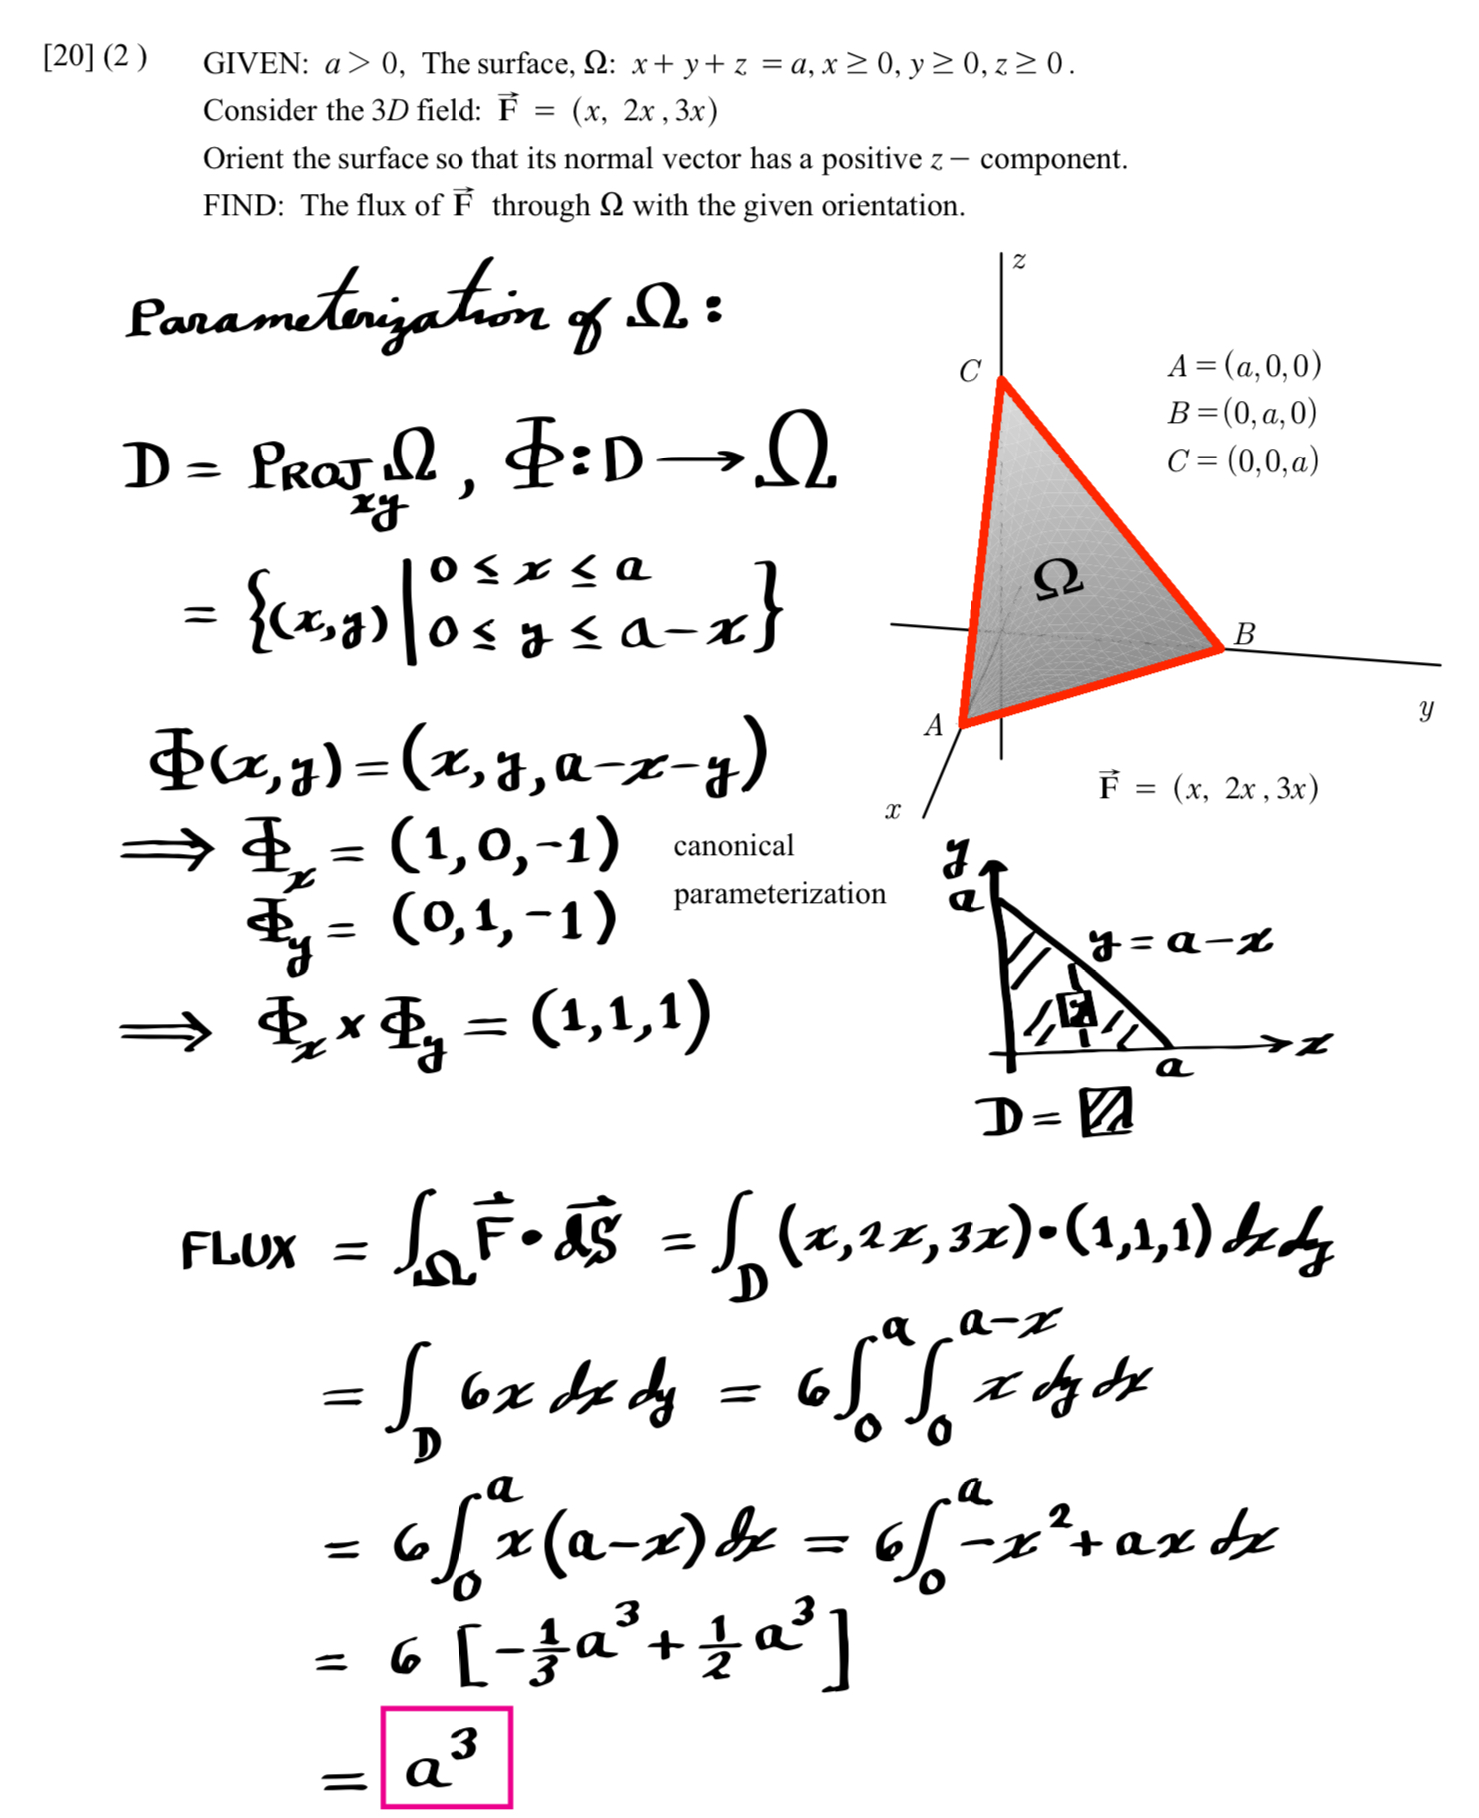 [20] (2 ) GIVEN: a > 0, The surface, Ω: x + y + z = a, x ≥ 0, y ≥ 0, z ≥ 0.
Consider the 3D field: F⃗ = (x, 2x, 3x)
Orient the surface so that its normal vector has a positive z − component.
FIND: The flux of F⃗ through Ω with the given orientation.
Parameterization of Ω:
z
C
A = (a,0,0)
B = (0,a,0)
C = (0,0,a)
D = PROJ_xy Ω, Φ: D ⟶ Ω
= {(x,y) | 0 ≤ x ≤ a
0 ≤ y ≤ a−x}
Ω
B
A
y
x
F⃗ = (x, 2x, 3x)
Φ(x,y) = (x, y, a−x−y)
⟹ Φ_x = (1,0,−1)
Φ_y = (0,1,−1)
canonical
parameterization
⟹ Φ_x × Φ_y = (1,1,1)
y
a
y = a−x
x
a
D = ▨
FLUX = ∫_Ω F⃗ • dS⃗ = ∫_D (x,2x,3x)•(1,1,1) dx dy
= ∫_D 6x dx dy = 6∫_0^a ∫_0^{a−x} x dy dx
= 6∫_0^a x(a−x) dx = 6∫_0^a −x² + ax dx
= 6 [−1/3 a³ + 1/2 a³]
= a³